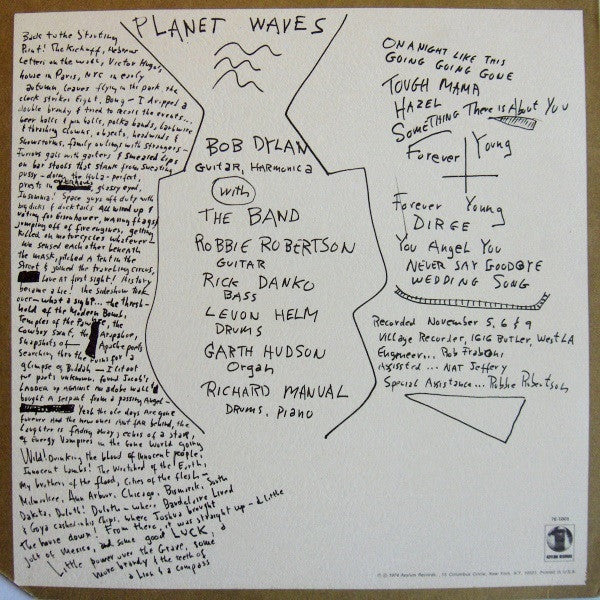 PLANET WAVES
Back to the Starting
Point! The Kickoff, Hebrew
Letters on the wall, Victor Hugo's
house in Paris, NYC in early
autumn, leaves flying in the park, the
clock strikes Eight, Bong — I dropped a
double brandy & tried to recall the events...
beer halls & pin balls, polka bands, barbwire
& thrashing clowns, objects, headwinds &
snowstorms, family outings with strangers —
Furious gals with garters & smeared lips
on bar stools that stank from sweating
pussy — doing the Hula — perfect,
priests in glassy eyed,
Insomnia! Space guys off duty with
big dicks & ducktails all wired up &
voting for Eisenhower, waving flags &
jumping off of fire engines, getting
killed on motorcycles whatever —
We sensed each other beneath
the mask, pitched a tent in the
Street & joined the traveling circus,
Love at first sight! History
became a lie! the sideshow took
over — what a sight... the thresh-
hold of the Modern Bomb,
Temples of the Pawnee, the
Cowboy Saint, the Arapahoe,
Snapshots of Apache poets
Searching thru the ruins for a
glimpse of Buddah — I lit out
for parts unknown, found Jacob's
Ladder up against an adobe wall &
bought a serpent from a passing Angel —
Yeah the ole days are gone
forever and the new ones aint far behind, the
Laughter is fading away, echos of a star,
of Energy Vampires in the Gone World going
Wild! Drinking the blood of innocent people,
Innocent Lambs! The Wretched of the Earth,
My brothers of the flood, Cities of the flesh —
Milwaukee, Ann Arbor, Chicago, Bismarck, South
Dakota, Duluth! Duluth — where Baudelaire Lived
& Goya cashed in his Chips, where Joshua brought
the house down! From there, it was straight up — a little
jolt of Mexico, and some good LUCK, a
Little power over the Grave, some
more brandy & the teeth of
a Lion & a compass
BOB DYLAN
Guitar, Harmonica
with
THE BAND
ROBBIE ROBERTSON
GUITAR
RICK DANKO
BASS
LEVON HELM
DRUMS
GARTH HUDSON
Organ
RICHARD MANUAL
DRUMS, Piano
ON A NIGHT LIKE THIS
GOING GOING GONE
TOUGH MAMA
HAZEL
SOMETHING There is About You
Forever Young
Forever Young
DIRGE
You Angel You
NEVER SAY GOODBYE
WEDDING SONG
Recorded November 5, 6 & 9
Village Recorder, 1616 Butler, West LA
Engineer... Rob Fraboni
Assisted... NAT Jeffery
Special Assistance... Robbie Robertson
7E-1003
ASYLUM RECORDS
© ℗ 1974 Asylum Records, 15 Columbus Circle, New York, N.Y. 10023. Printed in U.S.A.